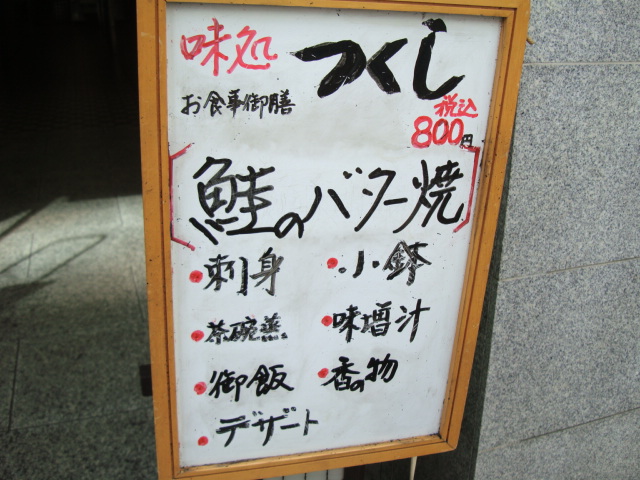 味処 つくし
お食事御膳
税込
800円
鮭のバター焼
刺身
小鉢
茶碗蒸
味增汁
御飯
香の物
デザート